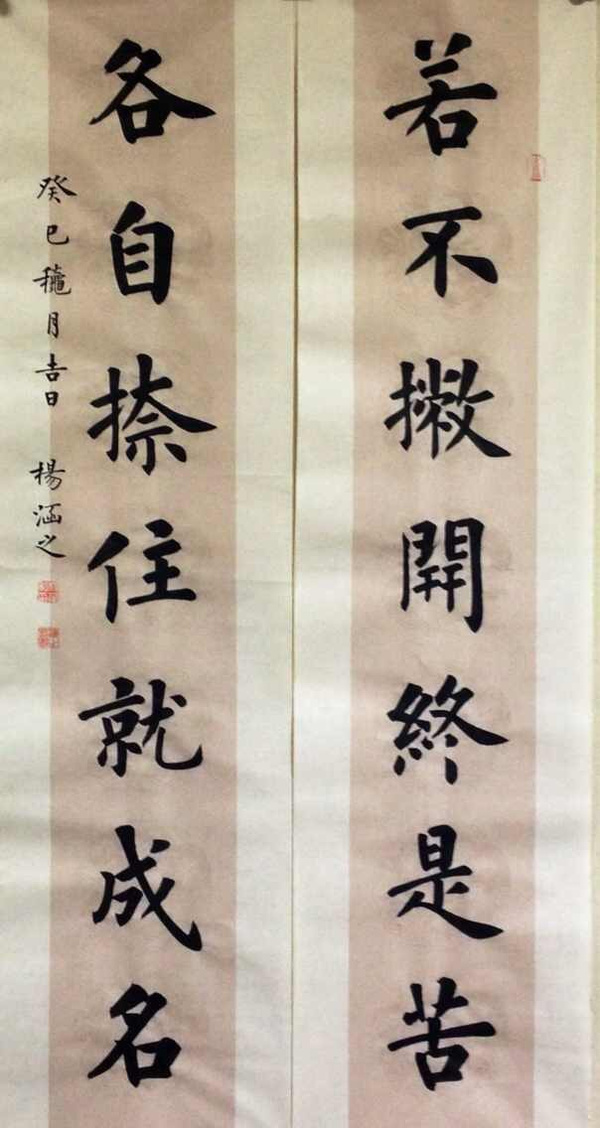 若不撇開終是苦
各自捺住就成名
癸巳龝月吉日 楊涵之